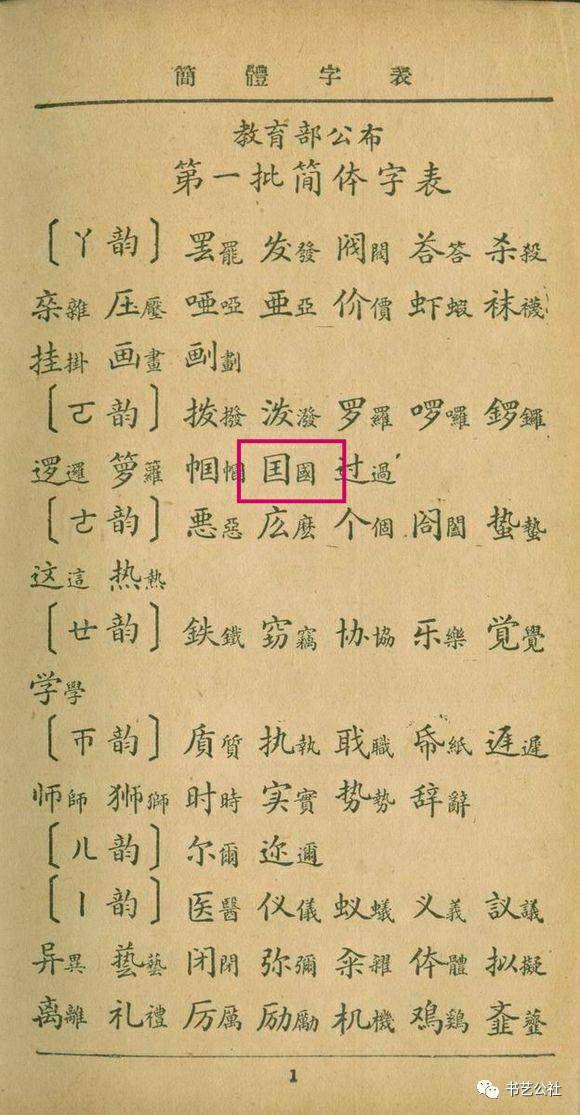 簡體字表
教育部公布
第一批简体字表
〔ㄚ韵〕罢罷 发發 阀閥 荅答 杀殺
杂雜 压壓 哑啞 亚亞 价價 虾蝦 袜襪
挂掛 画畫 劃
〔ㄛ韵〕拨撥 泼潑 罗羅 啰囉 锣鑼
逻邏 箩籮 帼幗 囯國 过過
〔ㄜ韵〕恶惡 庅麽 个個 阁閤 蛰蟄
这這 热熱
〔ㄝ韵〕鉄鐵 窃竊 协協 乐樂 覚覺
学學
〔ㄭ韵〕质質 执執 职職 帋紙 迟遲
师師 狮獅 时時 实實 势勢 辞辭
〔ㄦ韵〕尔爾 迩邇
〔ㄧ韵〕医醫 仪儀 蚁蟻 义義 议議
异異 艺藝 闭閉 弥彌 籴糴 体體 拟擬
离離 礼禮 厉厲 励勵 机機 鸡鷄
1
书艺公社